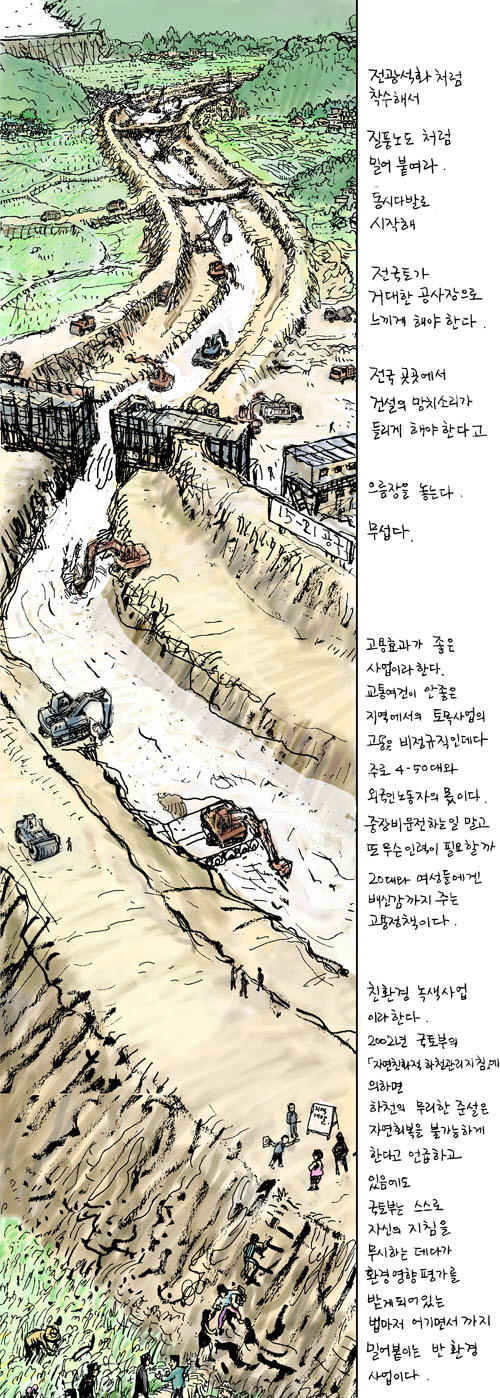 전광석화 처럼
착수해서
질풍노도 처럼
밀어 붙여라.
동시다발로
시작해
전국토가
거대한 공사장으로
느끼게 해야 한다.
전국 곳곳에서
건설의 망치소리가
들리게 해야 한다고
으름장을 놓는다.
무섭다.
15-21공구
고용효과가 좋은
사업이라 한다.
교통여건이 안좋은
지역에서의 토목사업의
고용은 비정규직인데다
주로 4-50대와
외국인 노동자의 몫이다.
중장비운전하는일 말고
또 무슨 인력이 필요할까
20대나 여성들에겐
배신감까지 주는
고용정책이다.
친환경 녹색사업
이라한다.
2002년 국토부의
「자연친화적 하천관리지침」에
의하면
하천의 무리한 준설은
자연회복을 불가능하게
한다고 언급하고
있음에도
국토부는 스스로
자신의 지침을
무시하는 데다가
환경영향평가를
받게되어있는
법마저 어기면서까지
밀어붙이는 반 환경
사업이다.
지역